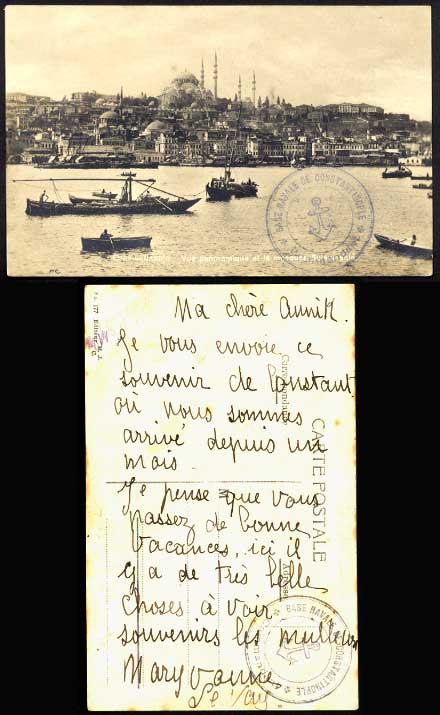 BASE NAVALE DE CONSTANTINOPLE
Vue panoramique et la mosquée Suleymanié
CARTE POSTALE
Correspondance
Ma chère Annik.
Je vous envoie ce
souvenir de Constant
où nous sommes
arrivé depuis un
mois.
Je pense que vous
passez de bonne
vacances, ici il
y a de très belle
choses à voir
souvenirs les meilleurs
Maryvanne
BASE NAVALE DE CONSTANTINOPLE